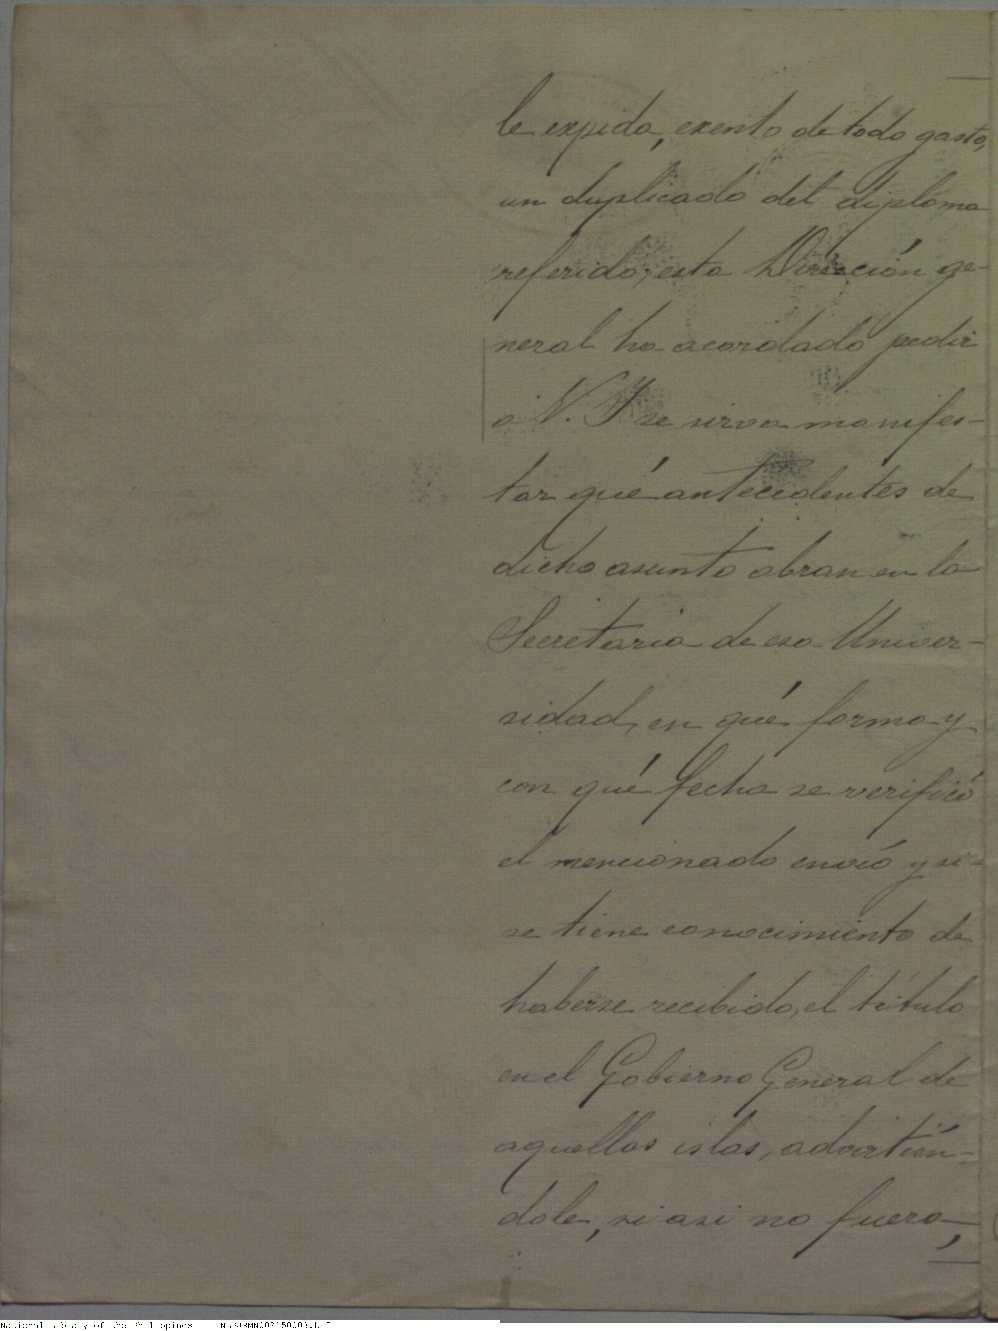 le expida, exento de todo gasto,
un duplicado del diploma
referido; esta Dirección ge-
neral ha acordado pedir
a V. I. se sirva manifes-
tar qué antecedentes de
dicho asunto obran en la
Secretaria de esa Univer-
sidad, en qué forma y
con qué fecha se verificó
el mencionado envió y si
se tiene conocimiento de
haberse recibido, el título
en el Gobierno General de
aquellas islas, advirtién-
dole, si asi no fuera,
National Library of the Philippines